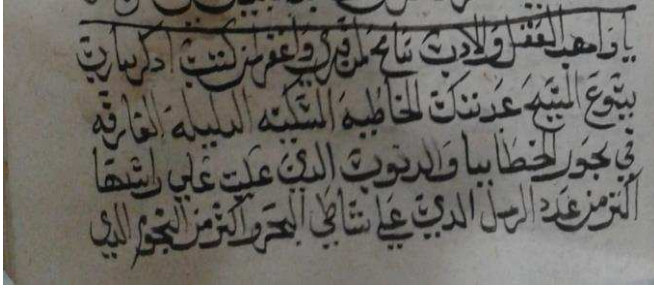 يا واهب العقل والادب سامح لمن قري واغفر لمن كتب اذكر يارب
يسوع المسيح عبدتك الخاطيه المسكينه الدليله الغارقه
في بحور الخطايا والدنوب الدي علت علي راسها
اكتر من عدد الرمل الدي علي شاطي البحر واكتر من النجوم الدي